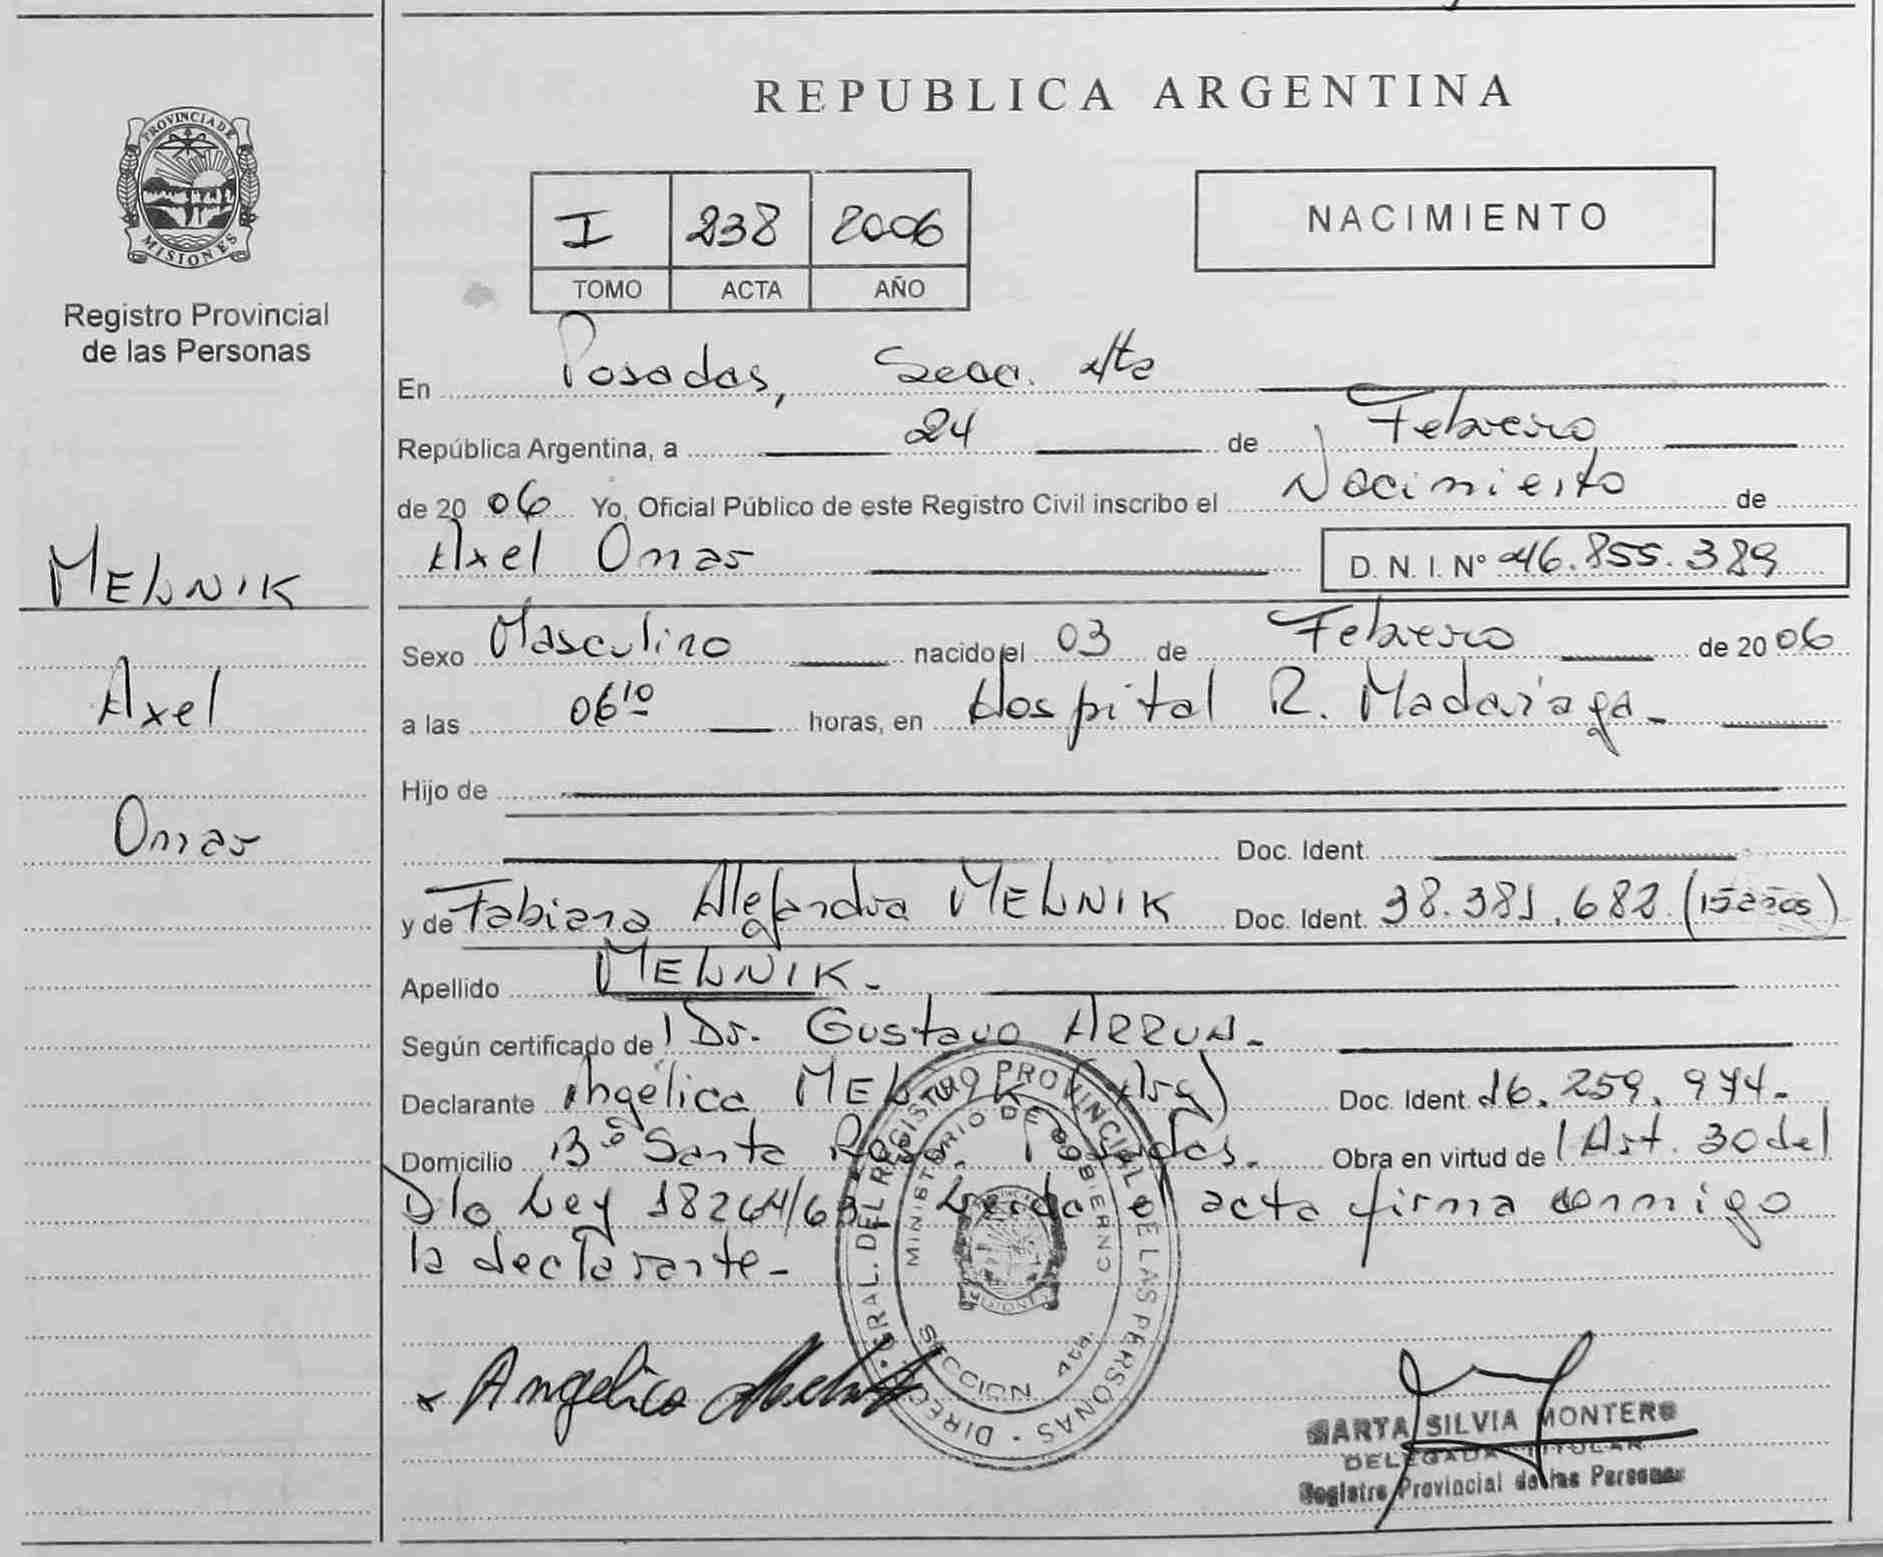 PROVINCIA DE
MISIONES
Registro Provincial
de las Personas
MELNIK
Axel
Omar
REPUBLICA ARGENTINA
I 238 2006
TOMO ACTA AÑO
NACIMIENTO
En Posadas, Secc. 4ta
República Argentina, a 24 de Febrero
de 2006 Yo, Oficial Público de este Registro Civil inscribo el Nacimiento de
Axel Omar D. N. I. Nº 46.855.389
Sexo Masculino nacido el 03 de Febrero de 2006
a las 06 10 horas, en Hospital R. Madariaga.-
Hijo de
Doc. Ident.
y de Fabiana Alejandra MELNIK Doc. Ident. 38.381.682 (15 años)
Apellido MELNIK.-
Según certificado del Dr. Gustavo ARRUA.-
Declarante Angélica MELNIK (Arg) Doc. Ident. 16.259.974.-
Domicilio Bº Santa Rosa, Posadas.- Obra en virtud del Art. 30 del
Dto Ley 18264/63. Leida el acta firma conmigo
la declarante.-
DIREC. GRAL. DEL REGISTRO PROVINCIAL DE LAS PERSONAS
MINISTERIO DE GOBIERNO
MISIONES
SECCION 4ta.
x Angelica Melnik
MARTA SILVIA MONTERO
DELEGADA TITULAR
Registro Provincial de las Personas